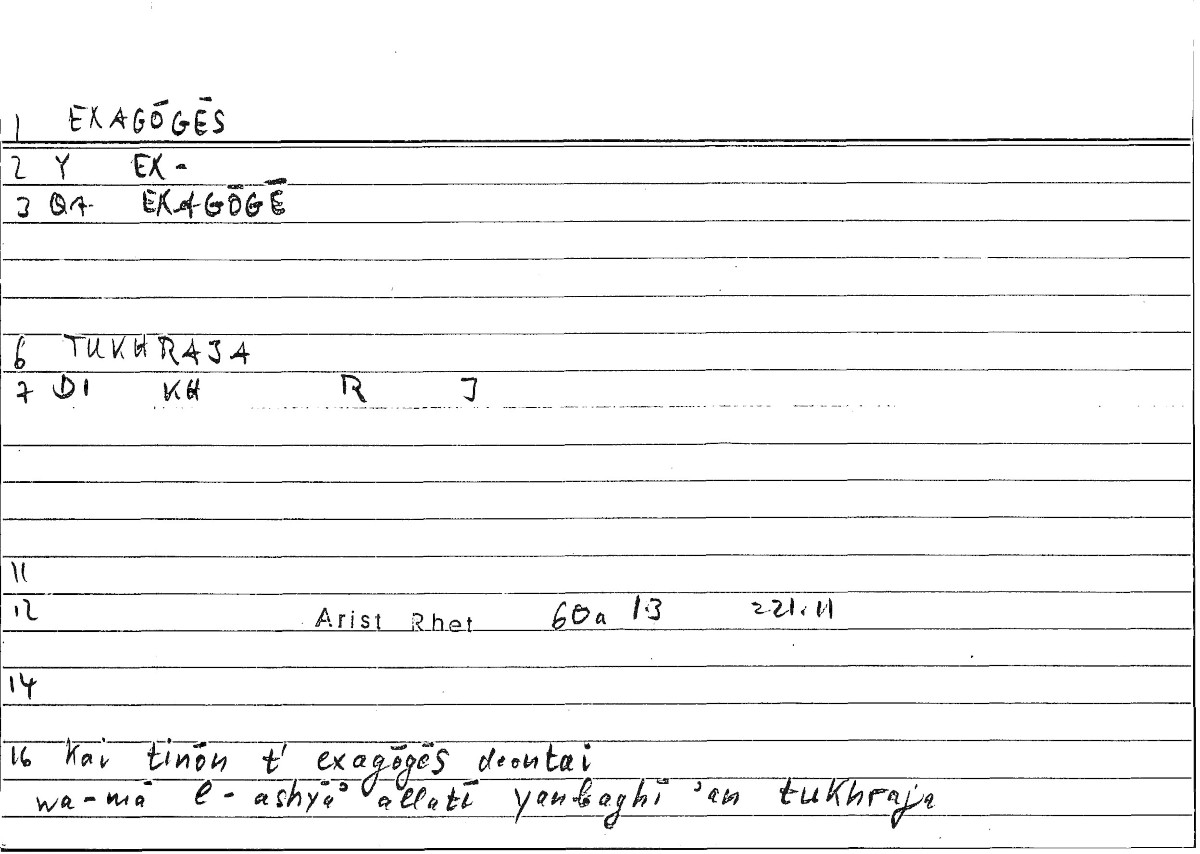 1 EXAGŌGĒS
2 Y EX-
3 QA EXAGŌGĒ
6 TUKHRAJA
7 DI KH R J
11
12 Arist Rhet 60a 13 221.11
14
16 kai tinōn t' exagōgēs deontai
wa-mā l-ashyāʾ allatī yanbaghī ʾan tukhraja